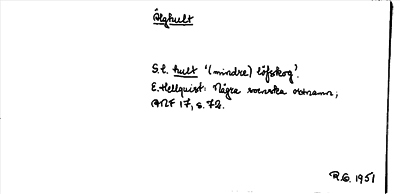 Älghult
S.l. hult '(mindre) löfskog'.
E. Hellquist: Några svenska ortnamn;
ANF 17, s. 72.
R.G. 1951